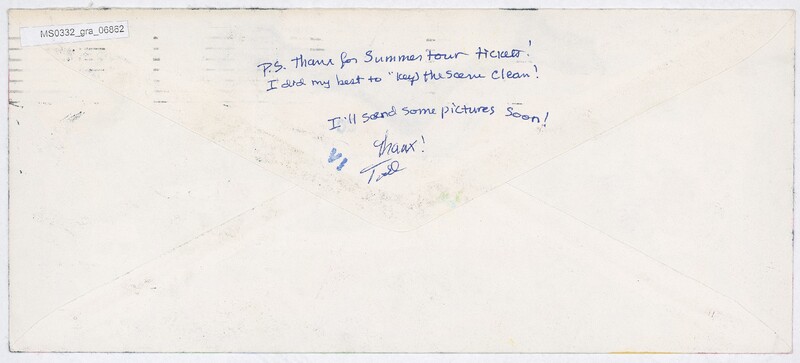 MS0332_gra_06862
P.S. Thanx for Summer tour tickets!
I did my best to "keep the scene clean!
I'll send some pictures soon!
Thanx!
Todd